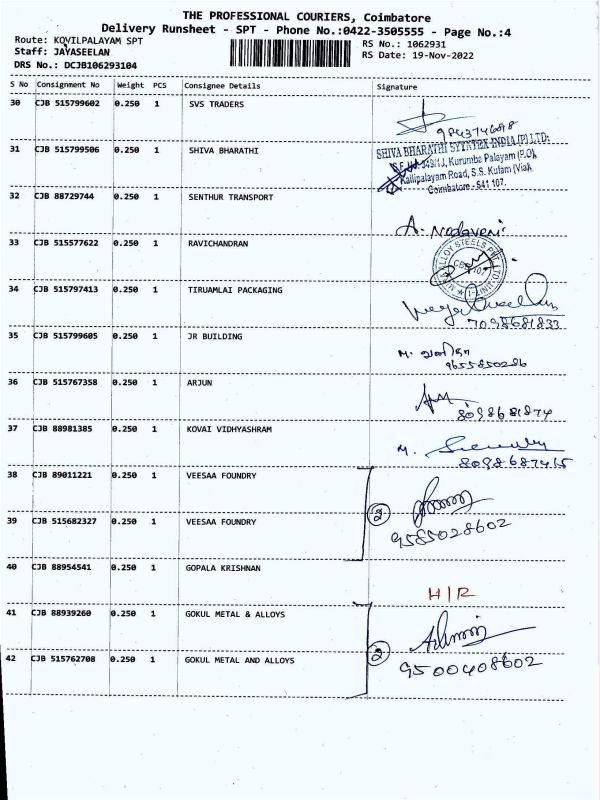 THE PROFESSIONAL COURIERS, Coimbatore
Delivery Runsheet - SPT - Phone No.:0422-3505555 - Page No.:4
Route: KOVILPALAYAM SPT
RS No.: 1062931
Staff: JAYASEELAN
RS Date: 19-Nov-2022
DRS No.: DCJB106293104
S No Consignment No Weight PCS Consignee Details Signature
30 CJB 515799602 0.250 1 SVS TRADERS
984374698
31 CJB 515799506 0.250 1 SHIVA BHARATHI
SHIVA BHARATHI SYNTEX INDIA (P) LTD:
S.F. No. 349/1J, Kurumba Palayam (P.O),
Kallipalayam Road, S.S. Kulam (Via),
Coimbatore - 641 107.
32 CJB 88729744 0.250 1 SENTHUR TRANSPORT
33 CJB 515577622 0.250 1 RAVICHANDRAN
34 CJB 515797413 0.250 1 TIRUAMLAI PACKAGING
7098681833
35 CJB 515799605 0.250 1 JR BUILDING
9655850286
36 CJB 515767358 0.250 1 ARJUN
8098681874
37 CJB 88981385 0.250 1 KOVAI VIDHYASHRAM
8098687415
38 CJB 89011221 0.250 1 VEESAA FOUNDRY
2
39 CJB 515682327 0.250 1 VEESAA FOUNDRY
9585028602
40 CJB 88954541 0.250 1 GOPALA KRISHNAN
H|R
41 CJB 88939260 0.250 1 GOKUL METAL & ALLOYS
2
42 CJB 515762708 0.250 1 GOKUL METAL AND ALLOYS
9500408602